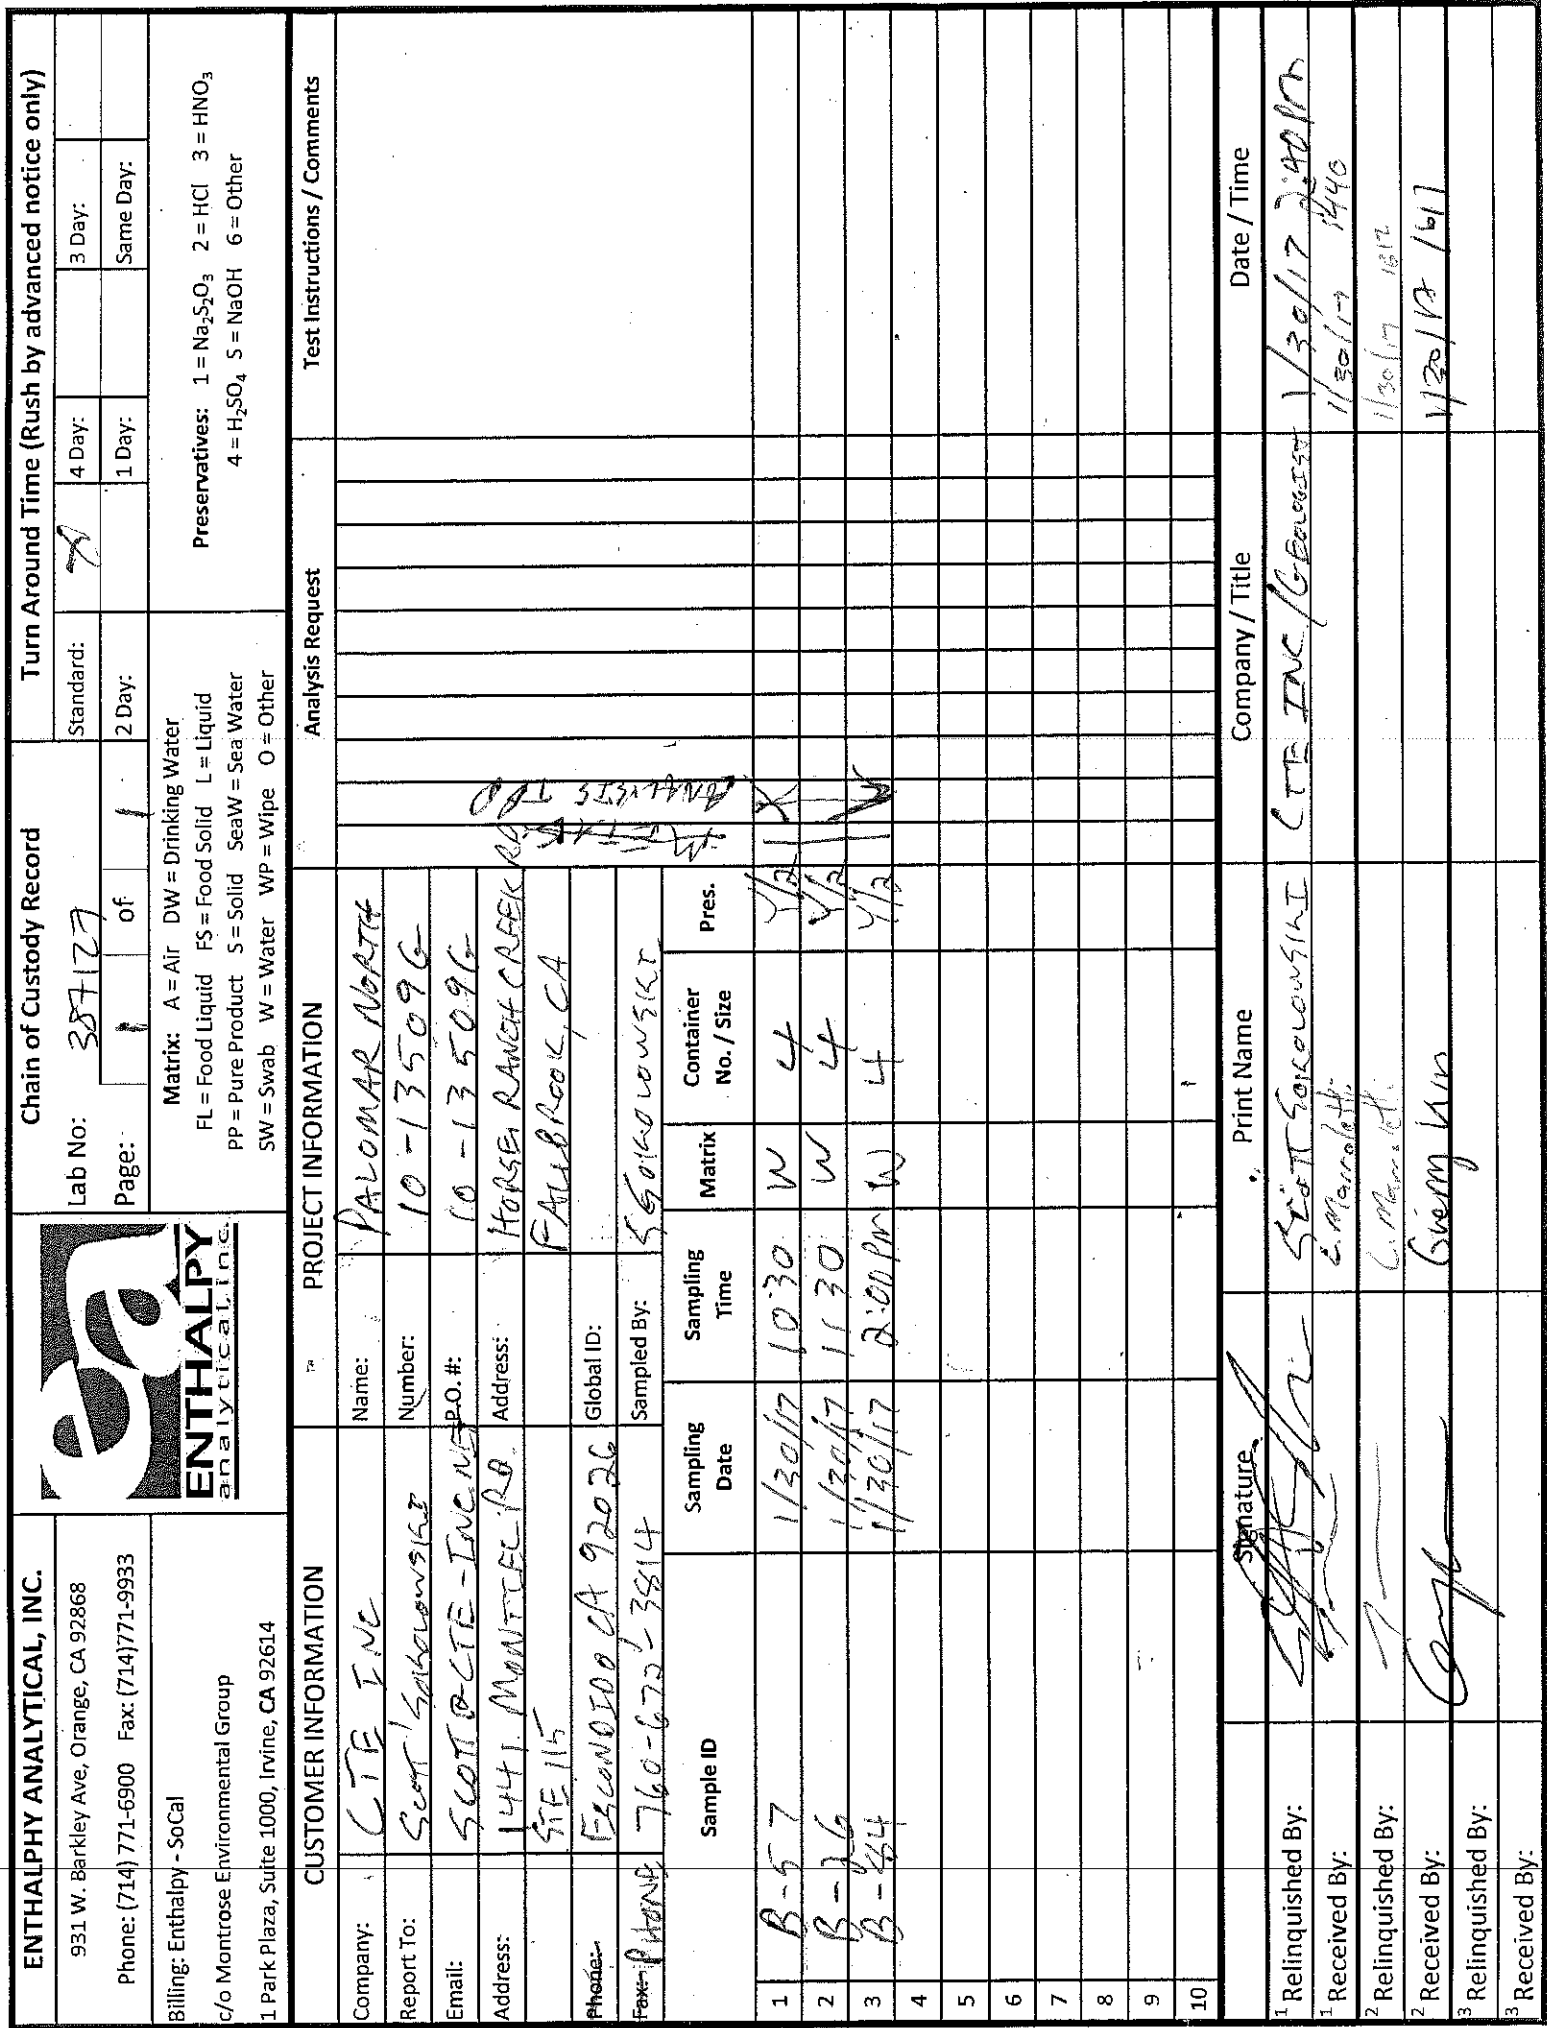 ENTHALPHY ANALYTICAL, INC.
931 W. Barkley Ave, Orange, CA 92868
Phone: (714) 771-6900 Fax: (714)771-9933
Billing: Enthalpy - SoCal
c/o Montrose Environmental Group
1 Park Plaza, Suite 1000, Irvine, CA 92614
ea
ENTHALPY
analytical, inc.
Chain of Custody Record
Lab No: 387127
Page: 1 of 1
Turn Around Time (Rush by advanced notice only)
Standard: X 4 Day: 3 Day:
2 Day: 1 Day: Same Day:
Matrix: A = Air DW = Drinking Water
FL = Food Liquid FS = Food Solid L = Liquid
PP = Pure Product S = Solid SeaW = Sea Water
SW = Swab W = Water WP = Wipe O = Other
Preservatives: 1 = Na₂S₂O₃ 2 = HCl 3 = HNO₃
4 = H₂SO₄ 5 = NaOH 6 = Other
CUSTOMER INFORMATION
Company: CTE INC
Report To: Scott Sokolowski
Email: SCOTT@CTE-INC.NET
Address: 1441 MONTIEL RD
STE 115
Phone: ESCONDIDO CA 92026
Fax: PHONE 760-672-3814
PROJECT INFORMATION
Name: PALOMAR NORTH
Number: 10-13509G
P.O. #: 10-13509G
Address: HORSE RANCH CREEK RD
FALLBROOK, CA
Global ID:
Sampled By: SSOKOLOWSKI
Analysis Request
ANALYSIS TBD
Test Instructions / Comments
Sample ID Sampling Date Sampling Time Matrix Container No. / Size Pres.
1 B-57 1/30/17 1030 W 4 Y/2 X
2 B-26 1/30/17 1130 W 4 Y/2
3 B-54 1/30/17 2:00PM W 4 Y/2
4
5
6
7
8
9
10
Signature Print Name Company / Title Date / Time
¹ Relinquished By: Scott Sokolowski CTE INC / GEOLOGIST 1/30/17 2:40PM
¹ Received By: 1/30/17 1440
² Relinquished By: 1/30/17 1617
² Received By: 1/30/17 1617
³ Relinquished By:
³ Received By: